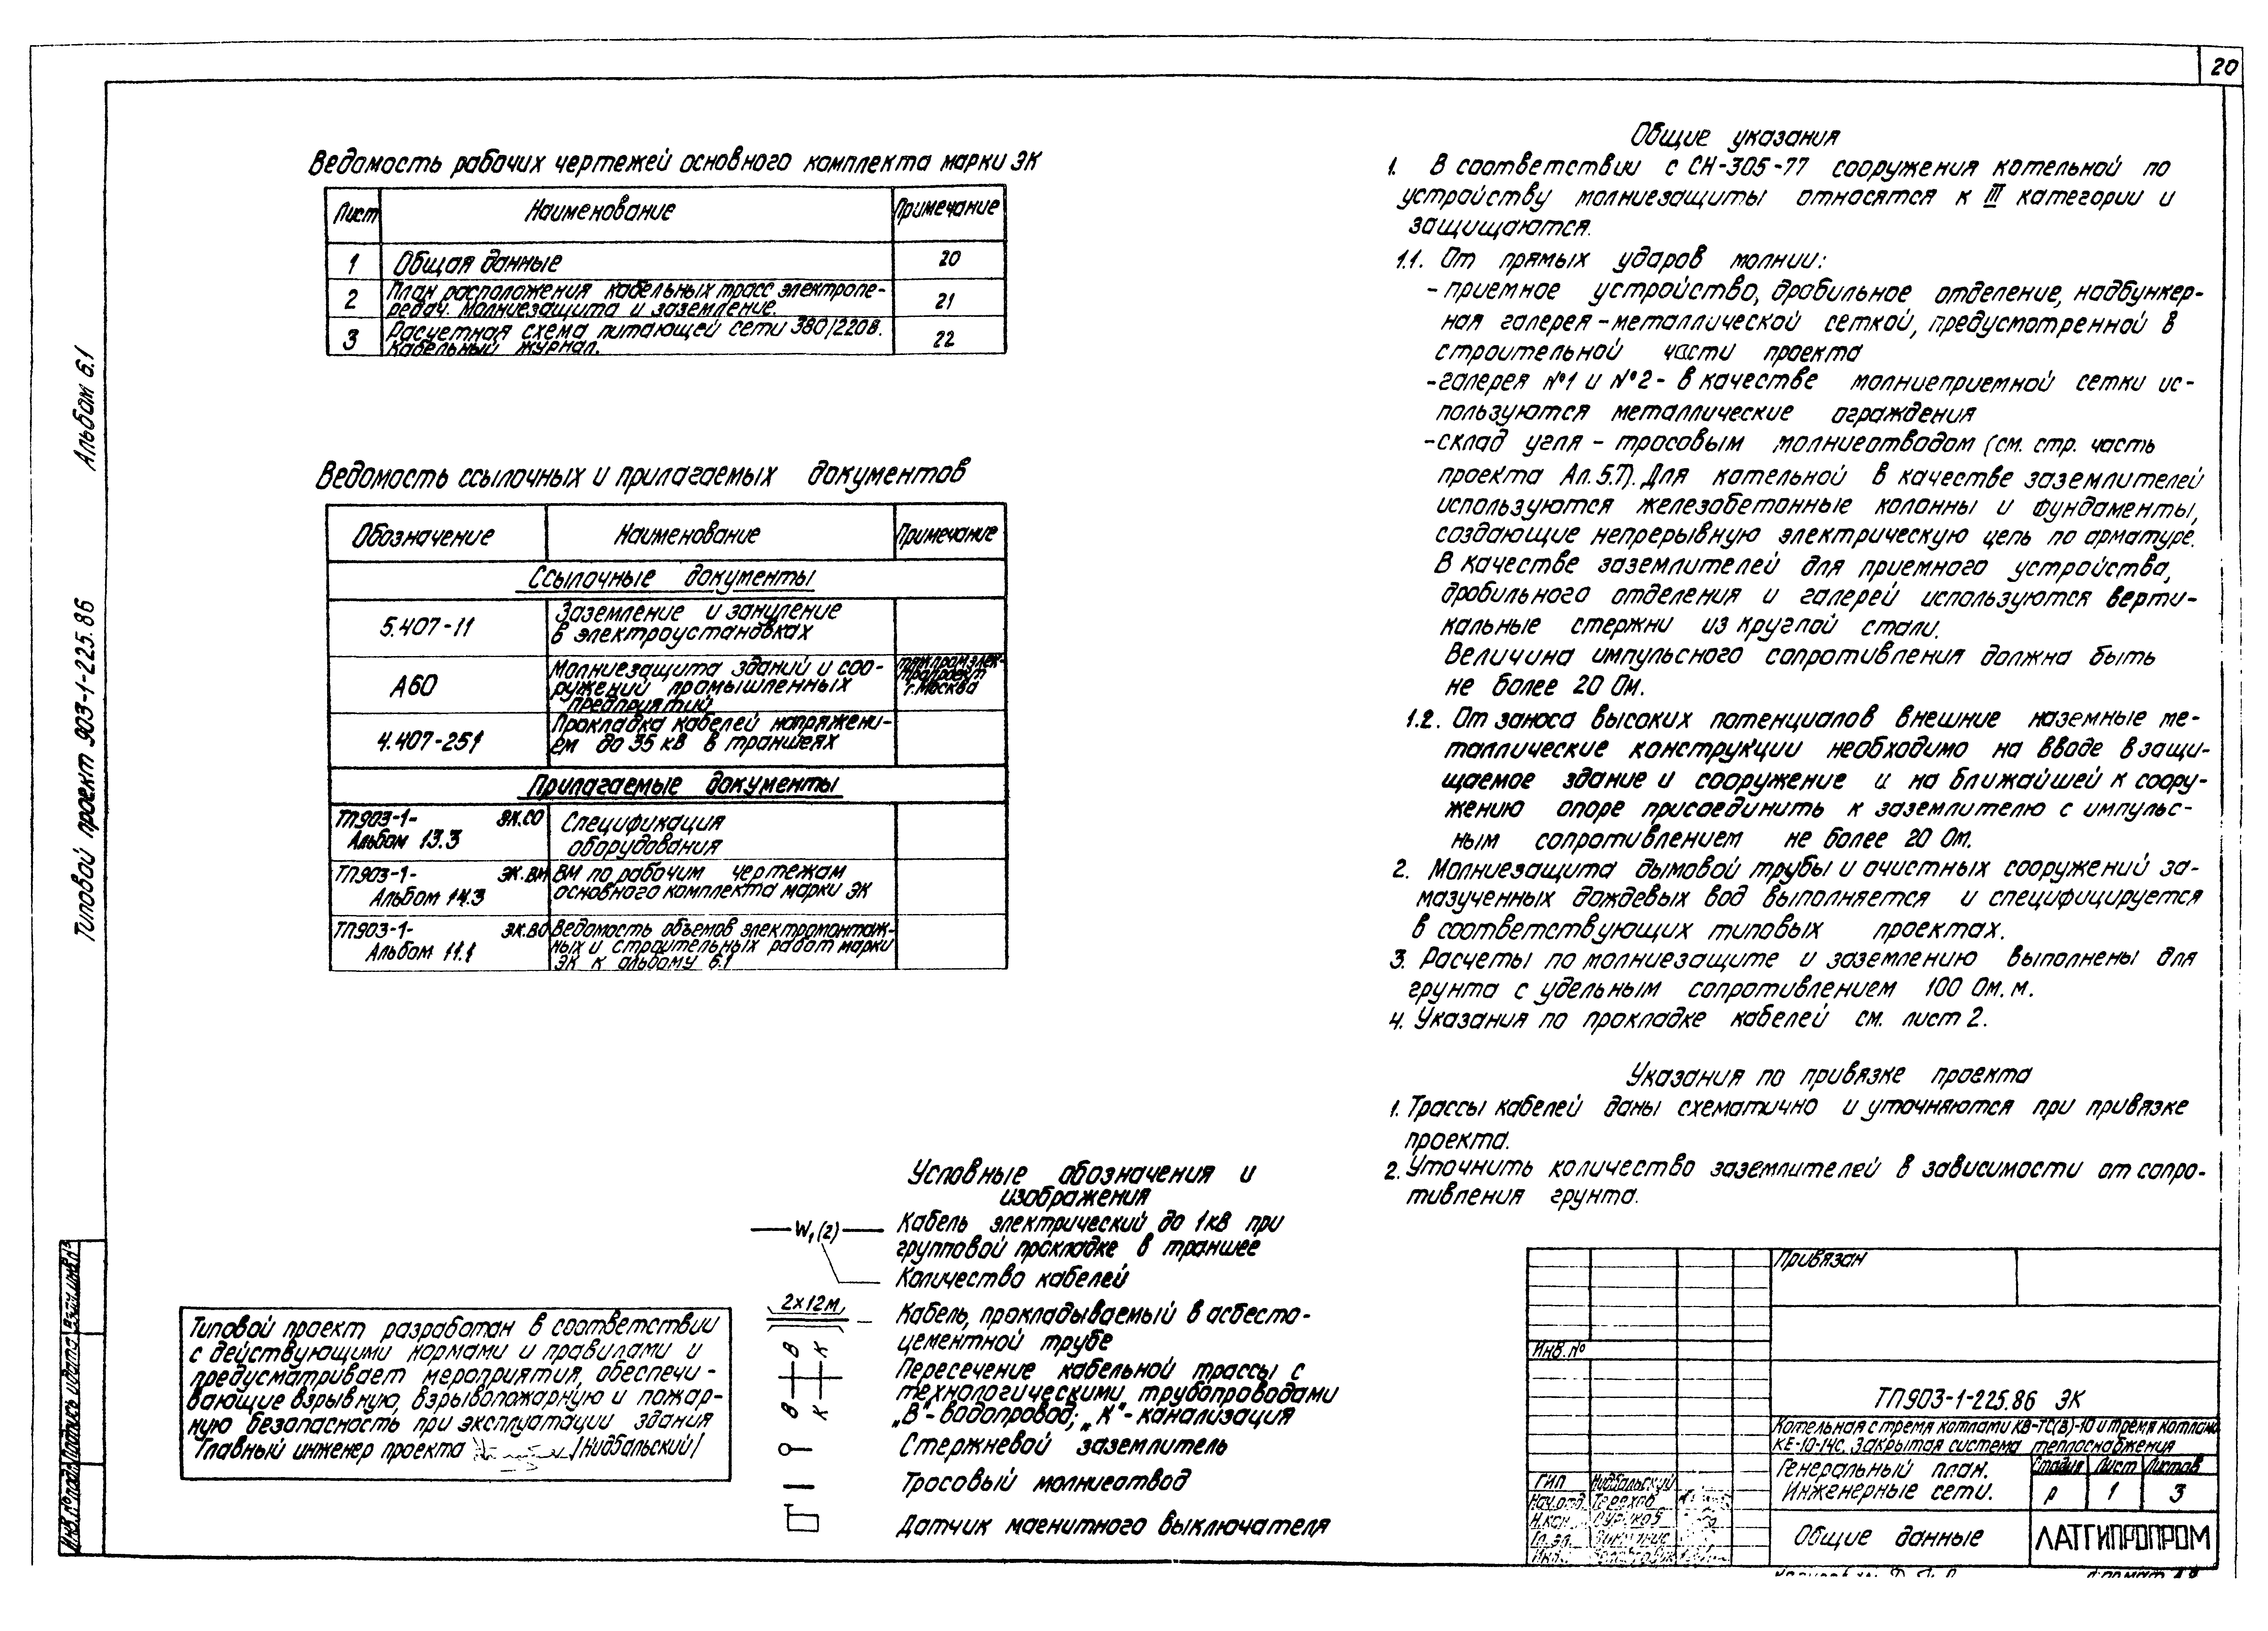 20
Альбом 6.1
Типовой проект 903-1-225.86
Ведомость рабочих чертежей основного комплекта марки ЭК
Лист Наименование Примечание
1 Общая данные 20
2 План расположения кабельных трасс электропе-
редач. Молниезащита и заземление. 21
3 Расчетная схема питающей сети 380/220В.
Кабельный журнал. 22
Ведомость ссылочных и прилагаемых документов
Обозначение Наименование Примечание
Ссылочные документы
5.407-11 Заземление и зануление
в электроустановках
А60 Молниезащита зданий и соо-
ружений промышленных
предприятий
тяжпромэлек-
тропроект
г. Москва
4.407-251 Прокладка кабелей напряжени-
ем до 35 кВ в траншеях
Прилагаемые документы
ТП.903-1- ЭК.СО
Альбом 13.3
Спецификация
оборудования
ТП.903-1- ЭК.ВМ
Альбом 14.3
ВМ по рабочим чертежам
основного комплекта марки ЭК
ТП.903-1- ЭК.ВО
Альбом 11.1
Ведомость объемов электромонтаж-
ных и строительных работ марки
ЭК к альбому 6.1
Общие указания
1. В соответствии с СН-305-77 сооружения котельной по
устройству молниезащиты относятся к III категории и
защищаются.
1.1. От прямых ударов молнии:
- приемное устройство, дробильное отделение, надбункер-
ная галерея - металлической сеткой, предусмотренной в
строительной части проекта
- галерея №1 и №2 - в качестве молниеприемной сетки ис-
пользуются металлические ограждения
- склад угля - тросовым молниеотводом (см. стр. часть
проекта Ал. 5.7). Для котельной в качестве заземлителей
используются железобетонные колонны и фундаменты,
создающие непрерывную электрическую цепь по арматуре.
В качестве заземлителей для приемного устройства,
дробильного отделения и галерей используются верти-
кальные стержни из круглой стали.
Величина импульсного сопротивления должна быть
не более 20 Ом.
1.2. От заноса высоких потенциалов внешние наземные ме-
таллические конструкции необходимо на вводе в защи-
щаемое здание и сооружение и на ближайшей к соору-
жению опоре присоединить к заземлителю с импульс-
ным сопротивлением не более 20 Ом.
2. Молниезащита дымовой трубы и очистных сооружений за-
мазученных дождевых вод выполняется и специфицируется
в соответствующих типовых проектах.
3. Расчеты по молниезащите и заземлению выполнены для
грунта с удельным сопротивлением 100 Ом.м.
4. Указания по прокладке кабелей см. лист 2.
Указания по привязке проекта
1. Трассы кабелей даны схематично и уточняются при привязке
проекта.
2. Уточнить количество заземлителей в зависимости от сопро-
тивления грунта.
Условные обозначения и
изображения
W₁(2) Кабель электрический до 1кВ при
групповой прокладке в траншее
Количество кабелей
2х12м Кабель, прокладываемый в асбесто-
цементной трубе
В К
В К
Пересечение кабельной трассы с
технологическими трубопроводами
„В"- водопровод; „К"- канализация
Стержневой заземлитель
Тросовый молниеотвод
Датчик магнитного выключателя
Типовой проект разработан в соответствии
с действующими нормами и правилами и
предусматривает мероприятия, обеспечи-
вающие взрывную, взрывопожарную и пожар-
ную безопасность при эксплуатации здания
Главный инженер проекта /Нидбальский/
Взам.инв.№
Подпись и дата
Инв.№ подл.
Привязан
Инв.№
ТП903-1-225.86 ЭК
Котельная с тремя котлами КВ-ТС(В)-10 и тремя котлами
КЕ-10-14с. Закрытая система теплоснабжения
Генеральный план.
Инженерные сети.
Стадия Лист Листов
Р 1 3
Общие данные
ЛАТГИПРОПРОМ
ГИП Нидбальский
Нач.отд. Терехов
Н.кон.
Формат